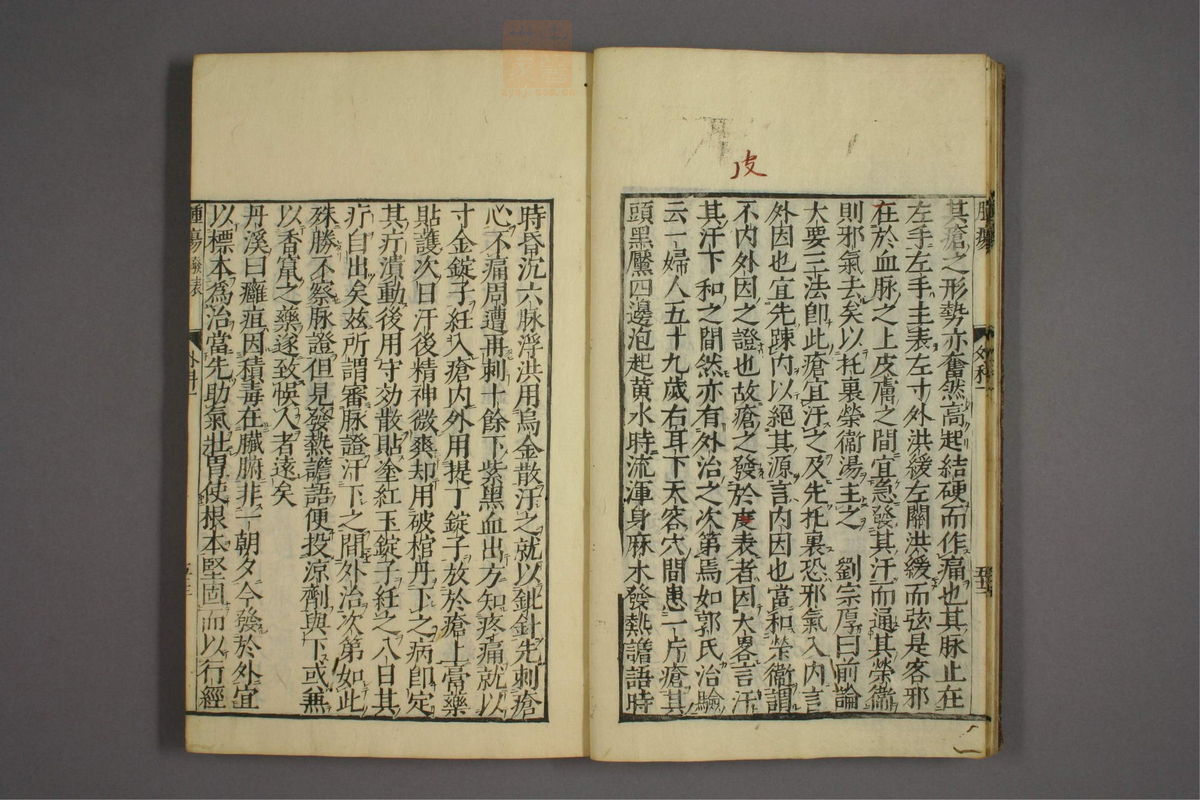 皮
腫瘍
外科一
五十二
其瘡之形勢亦奮然高起結硬而作痛也其脉止在
左手左手主表左寸外洪緩左關洪緩而弦是客邪
在於血脉之上皮膚之間宜急發其汗而通其榮衞
則邪氣去矣以托裏榮衞湯主之 劉宗厚曰前論
大要三法卽此瘡宜汗之及先托裏恐邪氣入内言
外因也宜先踈内以絕其源言内因也當和榮衞謂
不内外因之證也故瘡之發於皮表者因大畧言汗
其汗下和之間然亦有外治之次第焉如郭氏治驗
云一婦人五十九歲右耳下天容穴間患一疔瘡其
頭黑靨四邊泡起黄水時流渾身麻木發熱譫語時
時昏沉六脉浮洪用烏金散汗之就以鈚針先刺瘡
心不痛周遭再刺十餘下紫黑血出方知疼痛就以
寸金錠子絍入瘡内外用提丁錠子放於瘡上膏藥
貼護次日汗後精神微爽却用破棺丹下之病卽定
其疔潰動後用守効散貼塗紅玉錠子絍之八日其
疔自出矣玆所謂審脉證汗下之間外治次第如此
殊勝不察脉證但見發熱譫語便投涼劑與下或兼
以香竄之藥遂致悞人者遠矣
丹溪曰癰疽因積毒在臓腑非一朝夕今發於外宜
以標本爲治當先助氣壯胃使根本堅固而以行經
腫瘍
外科一
五十三